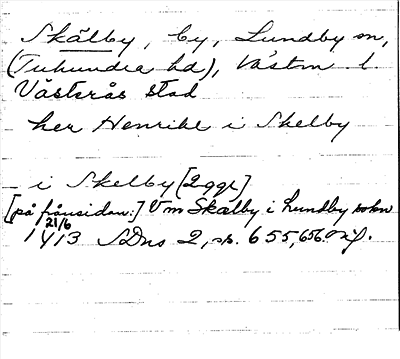 Skälby, by, Lundby sn,
(Tuhundra hd), Västm l
Västerås stad
her Henrikl i Skelby
– i Skelby [2 ggr]
[på frånsidan:] Um Skælby i Lundby sokn
21/6
1413 SDns 2, s. 655, 656. orig.